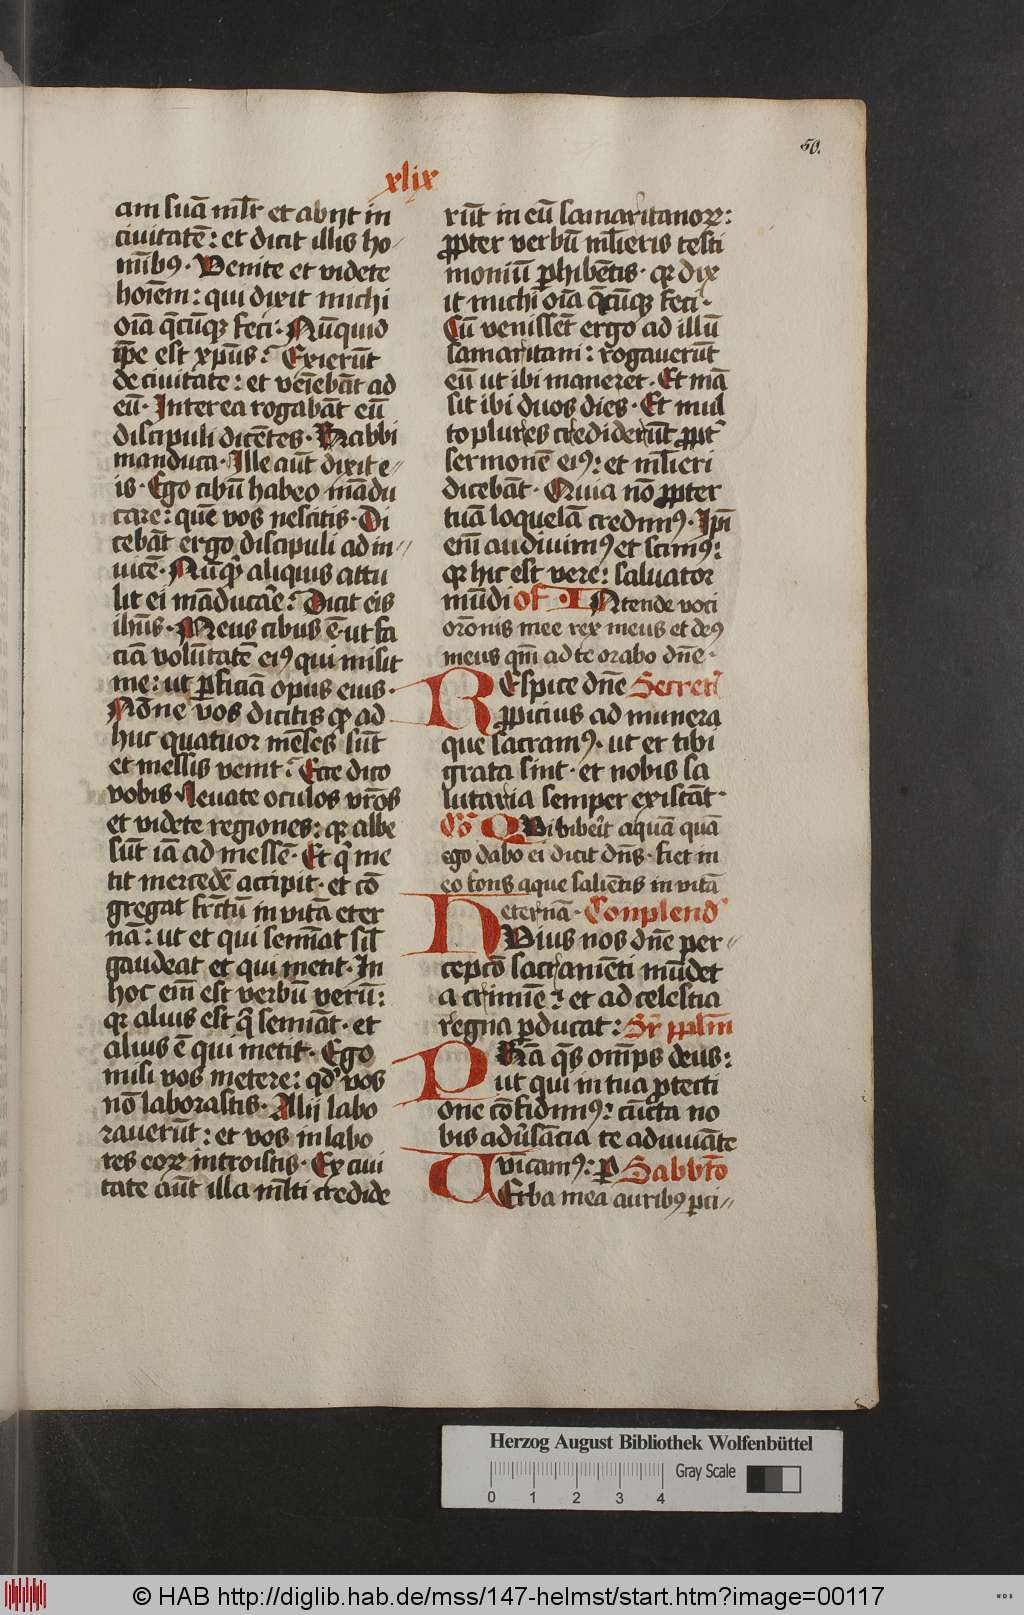 50.
xlix
am suā ml̄r et abijt in
ciuitatē: et dicit illis ho-
mīb9. Venite et videte
hoīem: qui dixit michi
oīa q̄cūqꝫ feci. Nūquid
ip̄e est xp̄us? Exierūt
de ciuitate: et veīebāt ad
eū. Interea rogabāt eū
discipuli dicētes. Rabbi
manduca. Ille aūt dixit e-
is. Ego cibū habeo mādu
care: quē vos nescitis. Di
cebāt ergo discipuli ad in-
uicē. Nūqͥd aliquis attu
lit ei māducar̄e? Dicit eis
ihūs. Meus cibus ē. ut fa
ciā volūtatē ei9 qui misit
me: ut ꝑficiā opus eius.
Nōne vos dicitis ꝙ ad
huc quatuor mēses sūt
et messis venit? Ecce dico
vobis. Leuate oculos vr̄os
et videte regiones: qꝛ albe
sūt iā ad messē. Et qͥ me
tit mercedē accipit. et cō
gregat fr̄ctū in vitā eter
nā: ut et qui semīat sīl
gaudeat et qui metit. In
hoc em̄ est verbū verū:
qꝛ alius est qͥ semīat. et
alius ē qui metit. Ego
misi vos metere: qd' vos
nō laborastis. Alij labo
rauerūt: et vos in labo
res eoꝝ introistis. Ex ciui
tate aūt illa ml̄ti credide
rūt in eū samaritanoꝝ:
ꝓpter verbū ml̄ieris testi
moniū ꝑhibētis. qꝛ dix
it michi oīa q̄cūqꝫ feci.
Cū venissēt ergo ad illū
samaritani: rogauerūt
eū ut ibi maneret. Et mā
sit ibi duos dies. Et mul
to plures crediderūt ꝓpt'
sermonē ei9: et ml̄ieri
dicebāt. Quia nō ꝓpter
tuā loquelā credim9. Ip̄i
em̄ audiuim9 et scim9:
qꝛ hic est vere: saluator
mūdi of Intende voci
orōnis mee rex meus et de9
meus qm̄ ad te orabo dn̄e.
REspice dn̄e Secret'
ꝓpicius ad munera
que sacram9. ut et tibi
grata sint. et nobis sa
lutaria semper existāt.
Cō QVi biber̄it aquā quā
ego dabo ei dicit dn̄s. fiet in
eo fons aque saliētis in vitā
eternā. Conplend'
HVius nos dn̄e per-
cepcō sacramēti mūdet
a crimīe: et ad celestia
regna ꝑducat: Sr̄ pplm̄
PRn̄a q̄s om̄ps deus:
ut qui in tua ꝓtecti
one cōfidim9: cūcta no
bis aduśācia te adiuuāte
vīcam9: ꝑ Sabbt̄o
VErba mea aurib9 ꝑci-
Herzog August Bibliothek Wolfenbüttel
Gray Scale
0 1 2 3 4
© HAB http://diglib.hab.de/mss/147-helmst/start.htm?image=00117